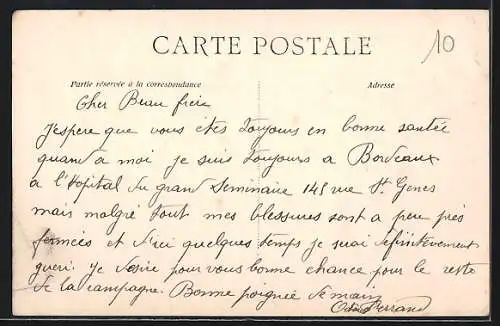 CARTE POSTALE
10
Partie réservée à la correspondance
Adresse
Cher Beau frère
J'espere que vous êtes toujours en bonne santée
quand a moi je suis toujours a Bordeaux
a l'Hopital du grand Seminaire 145 rue St. Genes
mais malgré tout mes blessures sont a peu près
fermées et d'ici quelques temps je serai définitevement
gueri. je désire pour vous bonne chance pour le reste
de la campagne. Bonne poignée de main
Ferrand